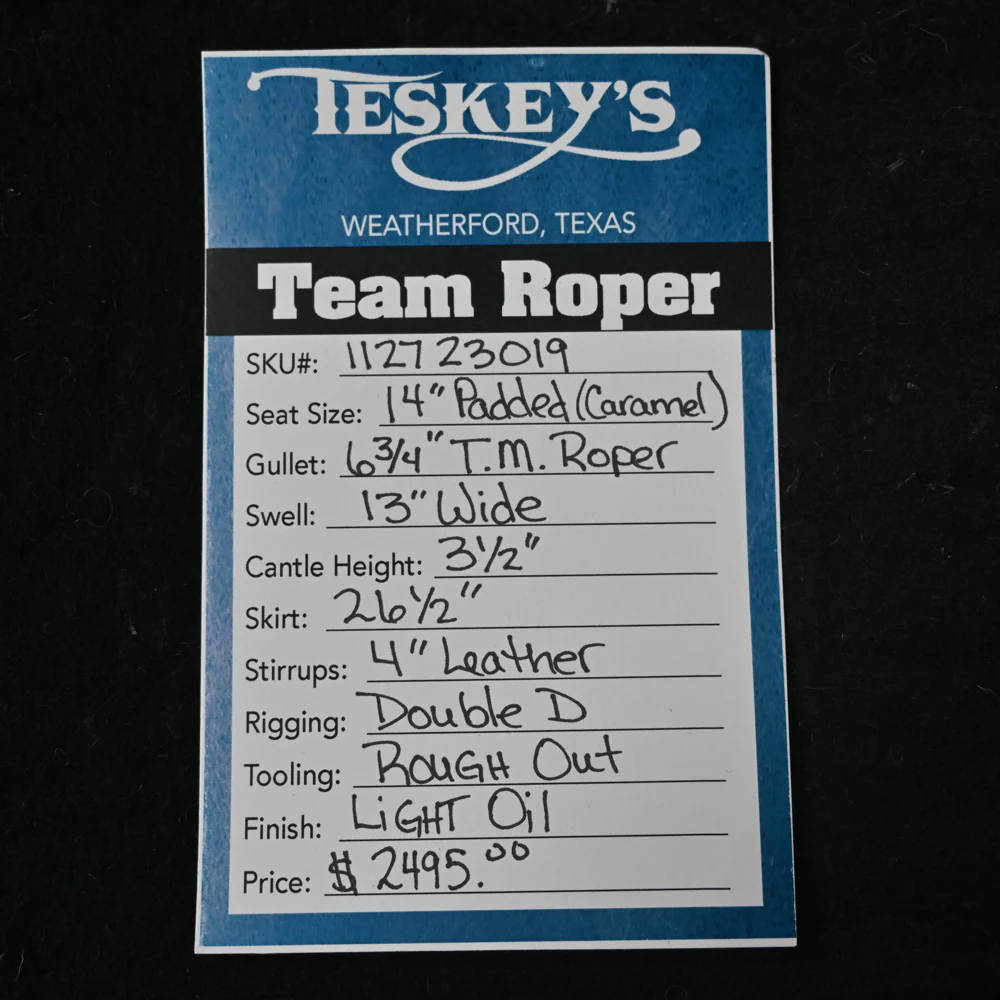 TESKEY'S
WEATHERFORD, TEXAS
Team Roper
SKU#: 112723019
Seat Size: 14" Padded (Caramel)
Gullet: 6 3/4" T.M. Roper
Swell: 13" Wide
Cantle Height: 3 1/2"
Skirt: 26 1/2"
Stirrups: 4" Leather
Rigging: Double D
Tooling: ROUGH Out
Finish: LiGHT Oil
Price: $ 2495.00